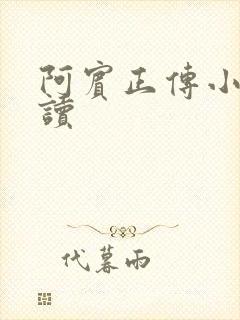 阿賓正傳小
讀
代暮雨